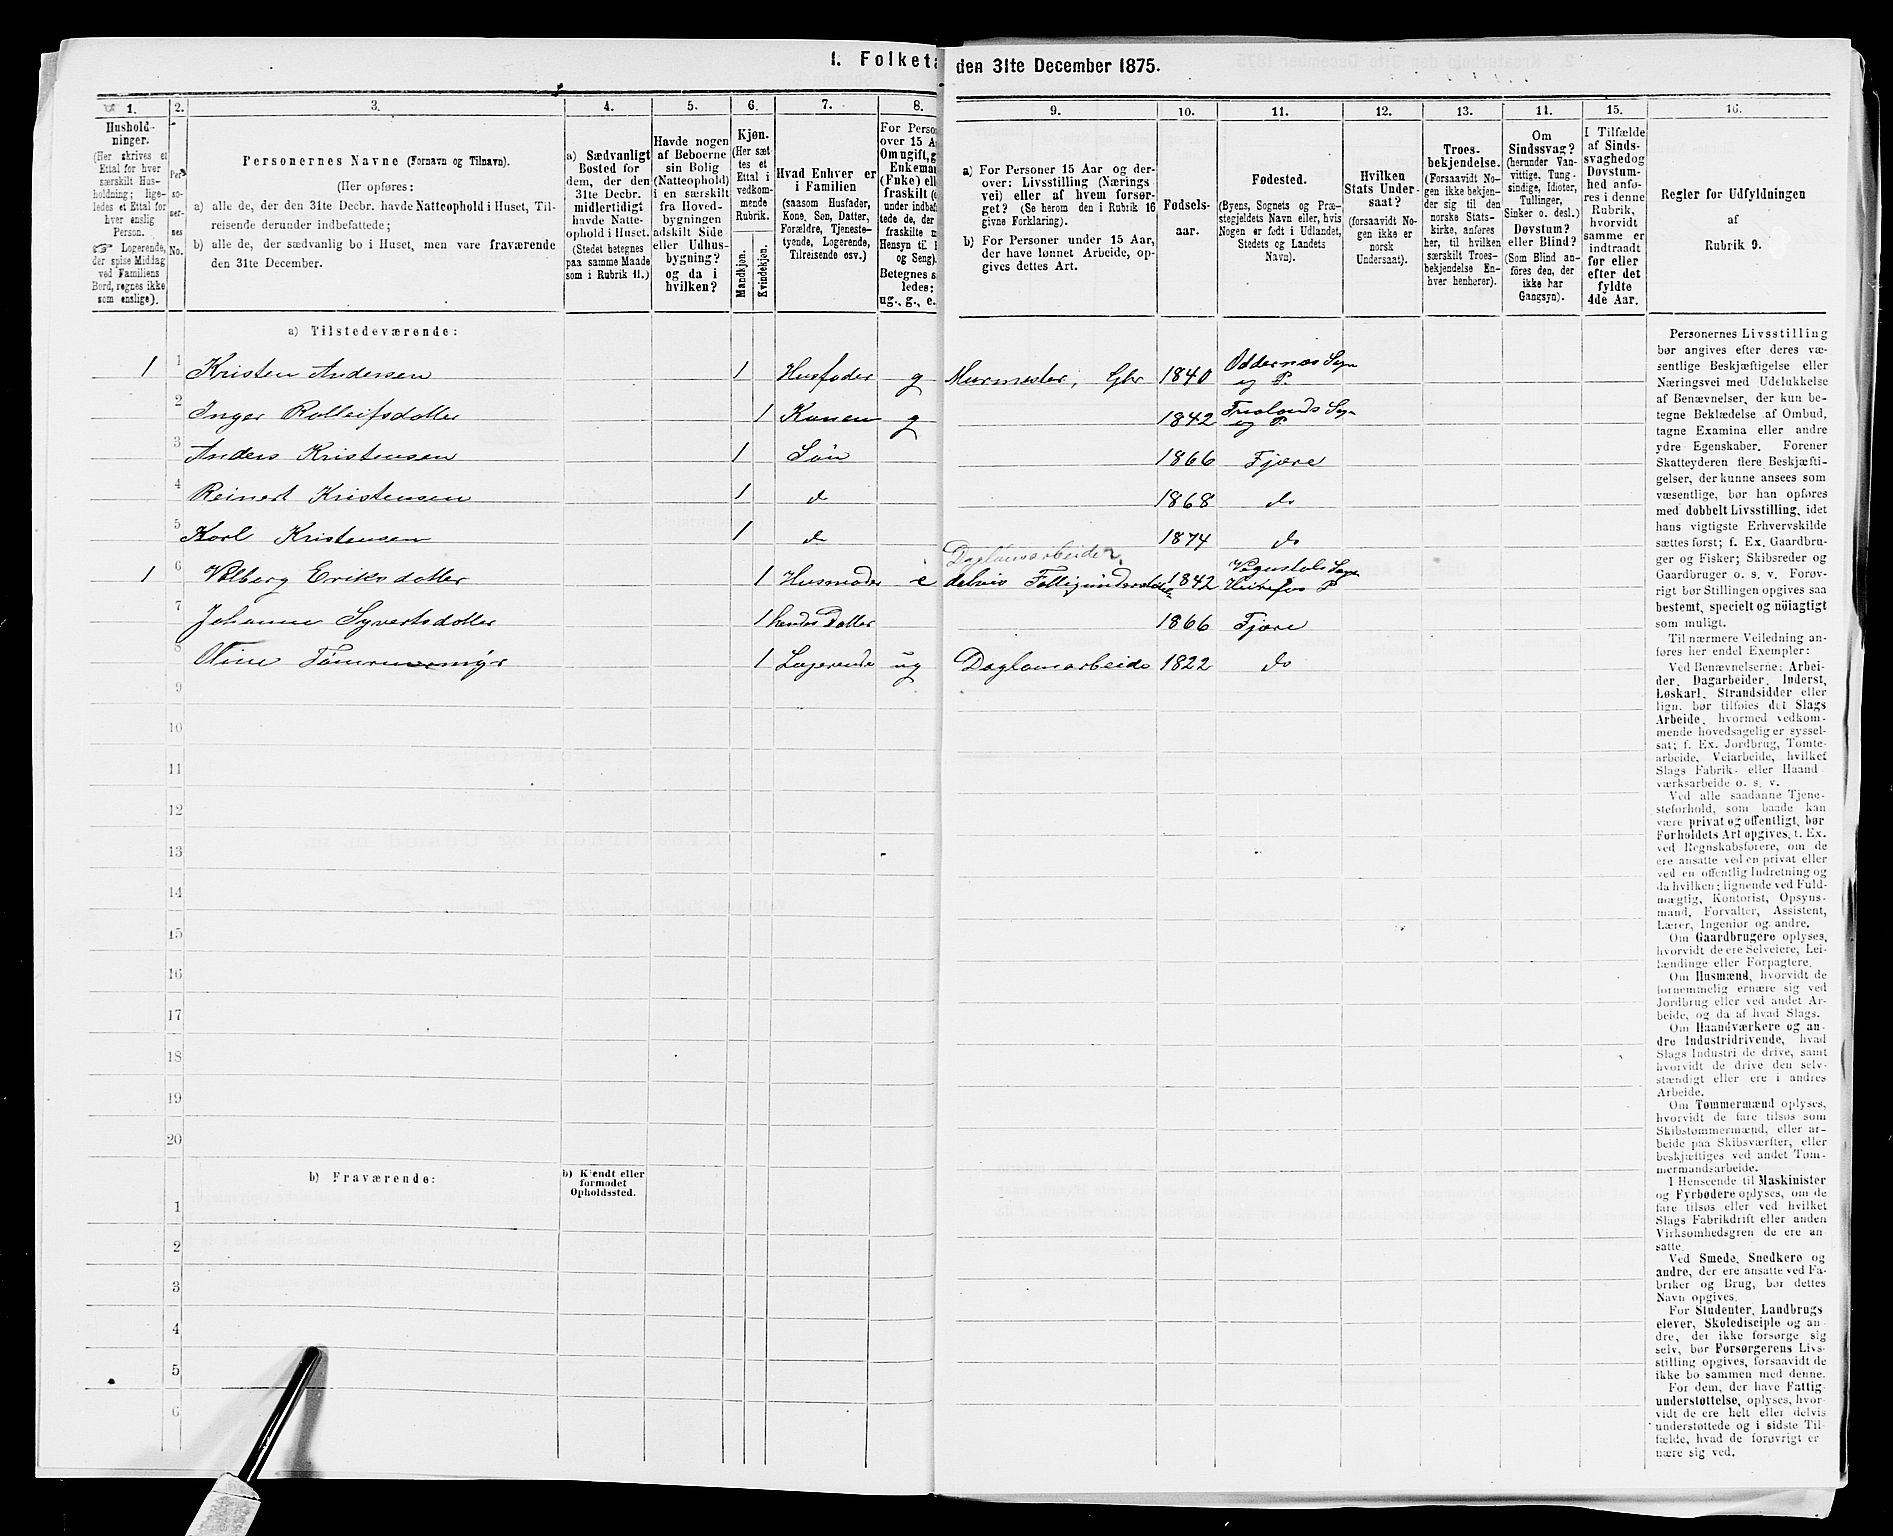 I. Folketæ
den 31te December 1875.
1. 2. 3. 4. 5. 6. 7. 8. 9. 10. 11. 12. 13. 14. 15. 16.
Hushold-
ninger.
(Her skrives et
Ettal for hver
særskilt Hus-
holdning; lige-
ledes et Ettal for
hver enslig
Person.
☞ Logerende,
der spise Middag
ved Familiens
Bord, regnes ikke
som enslige).
Per-
so-
ner-
nes
No.
Personernes Navne (Fornavn og Tilnavn).
(Her opføres:
a) alle de, der den 31te Decbr. havde Natteophold i Huset, Til-
reisende derunder indbefattede;
b) alle de, der sædvanlig bo i Huset, men vare fraværende
den 31te December.
a) Sædvanligt
Bosted for
dem, der den
31te Decbr.
midlertidigt
havde Natte-
ophold i Huset.
(Stedet betegnes
paa samme Maade
som i Rubrik 11.)
Havde nogen
af Beboerne
sin Bolig
(Natteophold)
i en særskilt
fra Hoved-
bygningen
adskilt Side
eller Udhus-
bygning?
og da i
hvilken?
Kjøn.
(Her sæt-
tes et
Ettal i
vedkom-
mende
Rubrik.
Mandkjøn.
Kvindekjøn.
Hvad Enhver er
i Familien
(saasom Husfader,
Kone, Søn, Datter,
Forældre, Tjeneste-
tyende, Logerende,
Tilreisende osv.)
For Perso
over 15 A
Om ugift, g
Enkeman
(Enke) ell
fraskilt (
under indbef
tede de, der
fraskilte m
Hensyn til
og Seng).
Betegnes s
ledes:
ug., g., e.
a) For Personer 15 Aar og der-
over: Livsstilling (Nærings
vei) eller af hvem forsør-
get? (Se herom den i Rubrik 16
givne Forklaring).
b) For Personer under 15 Aar,
der have lønnet Arbeide, op-
gives dettes Art.
Fødsels-
aar.
Fødested.
(Byens, Sognets og Præ-
stegjeldets Navn eller, hvis
Nogen er født i Udlandet,
Stedets og Landets
Navn).
Hvilken
Stats Under-
saat?
(forsaavidt No-
gen ikke er
norsk
Undersaat).
Troes-
bekjendelse.
(Forsaavidt No-
gen ikke bekjen-
der sig til den
norske Stats-
kirke, anføres
her, til hvilken
særskilt Troes-
bekjendelse En-
hver henhører).
Om
Sindssvag?
(herunder Van-
vittige, Tung-
sindige, Idioter,
Tullinger,
Sinker o. desl.)
Døvstum?
eller Blind?
(Som Blind an-
føres den, der
ikke har
Gangsyn).
I Tilfælde
af Sinds-
svaghed og
Døvstum-
hed anfø-
res i denne
Rubrik,
hvorvidt
samme er
indtraadt
før eller
efter det
fyldte
4de Aar.
Regler for Udfyldningen
af
Rubrik 9.
a) Tilstedeværende:
1 1 Kristen Andersen 1 Husfader g Murmester, Gbr 1840 Oddernes Sogn
og P.
2 Inger Rolleifsdatter 1 Konen g 1842
og P.
3 Anders Kristensen 1 Søn 1866 Fjære
4 Reinert Kristensen 1 do 1868 do
5 Karl Kristensen 1 do 1874 do
Daglønsarbeider
1 6 Valberg Eriksdatter 1 Husmoder e delvis 1842
7 Johanne Syvertsdatter 1 hendes Datter 1866 Fjære
8 Oline 1 Logerende ug Daglønarbeide 1822 do
9
10
11
12
13
14
15
16
17
18
19
20
b) Fraværende:
b) Kjendt eller
formodet
Opholdssted.
1
2
3
4
5
6
Personernes Livsstilling
bør angives efter deres væ-
sentlige Beskjæftigelse eller
Næringsvei med Udelukkelse
af Benævnelser, der kun be-
tegne Beklædelse af Ombud,
tagne Examina eller andre
ydre Egenskaber. Forener
Skatteyderen flere Beskjæfti-
gelser, der kunne ansees som
væsentlige, bør han opføres
med dobbelt Livsstilling, idet
hans vigtigste Erhvervskilde
sættes først; f. Ex. Gaardbru-
ger og Fisker; Skibsreder og
Gaardbruger o. s. v. Forøv-
rigt bør Stillingen opgives saa
bestemt, specielt og nøiagtigt
som muligt.
Til nærmere Veiledning an-
føres her endel Exempler:
Ved Benævnelserne: Arbei-
der, Dagarbeider, Inderst,
Løskarl, Strandsidder eller
lign. bør tilføies det Slags
Arbeide, hvormed vedkom-
mende hovedsagelig er syssel-
sat; f. Ex. Jordbrug, Tomte-
arbeide, Veiarbeide, hvilket
Slags Fabrik- eller Haand
værksarbeide o. s. v.
Ved alle saadanne Tjene-
steforhold, som baade kan
være privat og offentligt, bør
Forholdets Art opgives, t. Ex.
ved Regnskabsførere, om de
ere ansatte ved en privat eller
ved en offentlig Indretning og
da hvilken; lignende ved Fuld-
mægtig, Kontorist, Opsyns-
mand, Forvalter, Assistent,
Lærer, Ingeniør og andre.
Om Gaardbrugere oplyses,
hvorvidt de ere Selveiere, Lei-
lændinge eller Forpagtere.
Om Husmænd, hvorvidt de
fornemmelig ernære sig ved
Jordbrug eller ved andet Ar-
beide, og da af hvad Slags.
Om Haandværkere og an-
dre Industridrivende, hvad
Slags Industri de drive, samt
hvorvidt de drive den selv-
stændigt eller ere i andres
Arbeide.
Om Tømmermænd oplyses,
hvorvidt de fare tilsøs som
Skibstømmermænd, eller ar-
beide paa Skibsværfter, eller
beskjæftiges ved andet Tøm-
mermandsarbeide.
I Henseende til Maskinister
og Fyrbødere oplyses, om de
fare tilsøs eller ved hvilket
Slags Fabrikdrift eller anden
Virksomhedsgren de ere an-
satte.
Ved Smede, Snedkere og
andre, der ere ansatte ved Fa-
briker og Brug, bør dettes
Navn opgives.
For Studenter, Landbrugs
elever, Skoledisciple og an-
dre, der ikke forsørge sig
selv, bør Forsørgerens Livs-
stilling opgives, forsaavidt de
ikke bo sammen med denne.
For dem, der have Fattig-
understøttelse, oplyses, hvor-
vidt de ere helt eller delvis
understøttede og i sidste Til-
fælde, hvad de forøvrigt er-
nære sig ved.